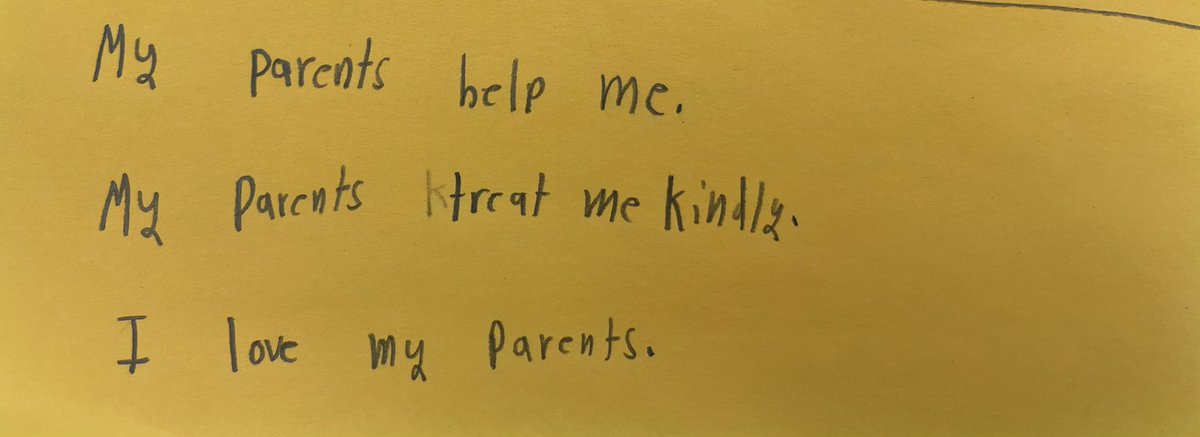 My parents help me.
My parents treat me kindly.
I love my parents.